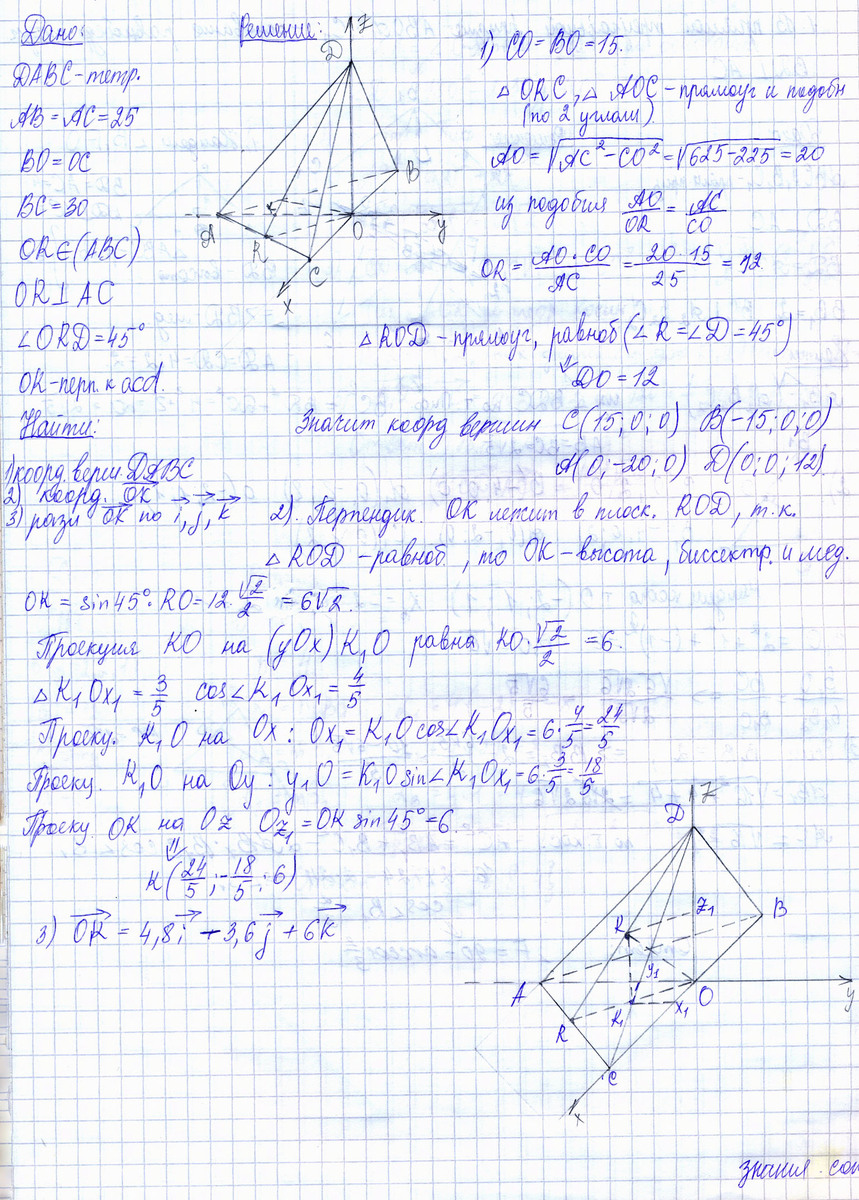 Дано:
DABC - тетр.
AB = AC = 25
BO = OC
BC = 30
OR∈(ABC)
OR⊥AC
∠ORD=45°
OK-перп. к acd.
Найти:
1) коорд. верш DABC
2) коорд. OK
3) разл OK по i, j, k
Решение:
Z
D
B
A
K
O
y
R
C
x
1) CO = BO = 15.
△ ORC, △ AOC - прямоуг и подобн
(по 2 углам)
AO = √AC² - CO² = √625 - 225 = 20
из подобия AO/OR = AC/CO
OR = AO · CO/AC = 20 · 15/25 = 12
△ ROD - прямоуг, равноб (∠R = ∠D = 45°)
⇓
DO = 12
Значит коорд вершин C(15; 0; 0) B(-15; 0; 0)
A(0; -20; 0) D(0; 0; 12)
2). Перпендик. OK лежит в плоск. ROD, т.к.
△ ROD - равноб, то OK - высота, биссектр. и мед.
OK = sin45° · RO = 12 · √2/2 = 6√2.
Проекция KO на (yOx) K₁O равна KO · √2/2 = 6.
△ K₁Ox₁ = 3/5 cos∠K₁Ox₁ = 4/5
Проекц. K₁O на Ox : Ox₁ = K₁O cos∠K₁Ox₁ = 6 · 4/5 = 24/5
Проекц. K₁O на Oy : y₁O = K₁O sin∠K₁Ox₁ = 6 · 3/5 = 18/5
Проекц. OK на Oz Oz₁ = OK sin45° = 6.
⇓
K(24/5; -18/5; 6)
3) OK = 4,8i - 3,6j + 6k
Z
D
K
Z₁
B
y₁
A
O
y
K₁
x₁
R
C
x
знания.com